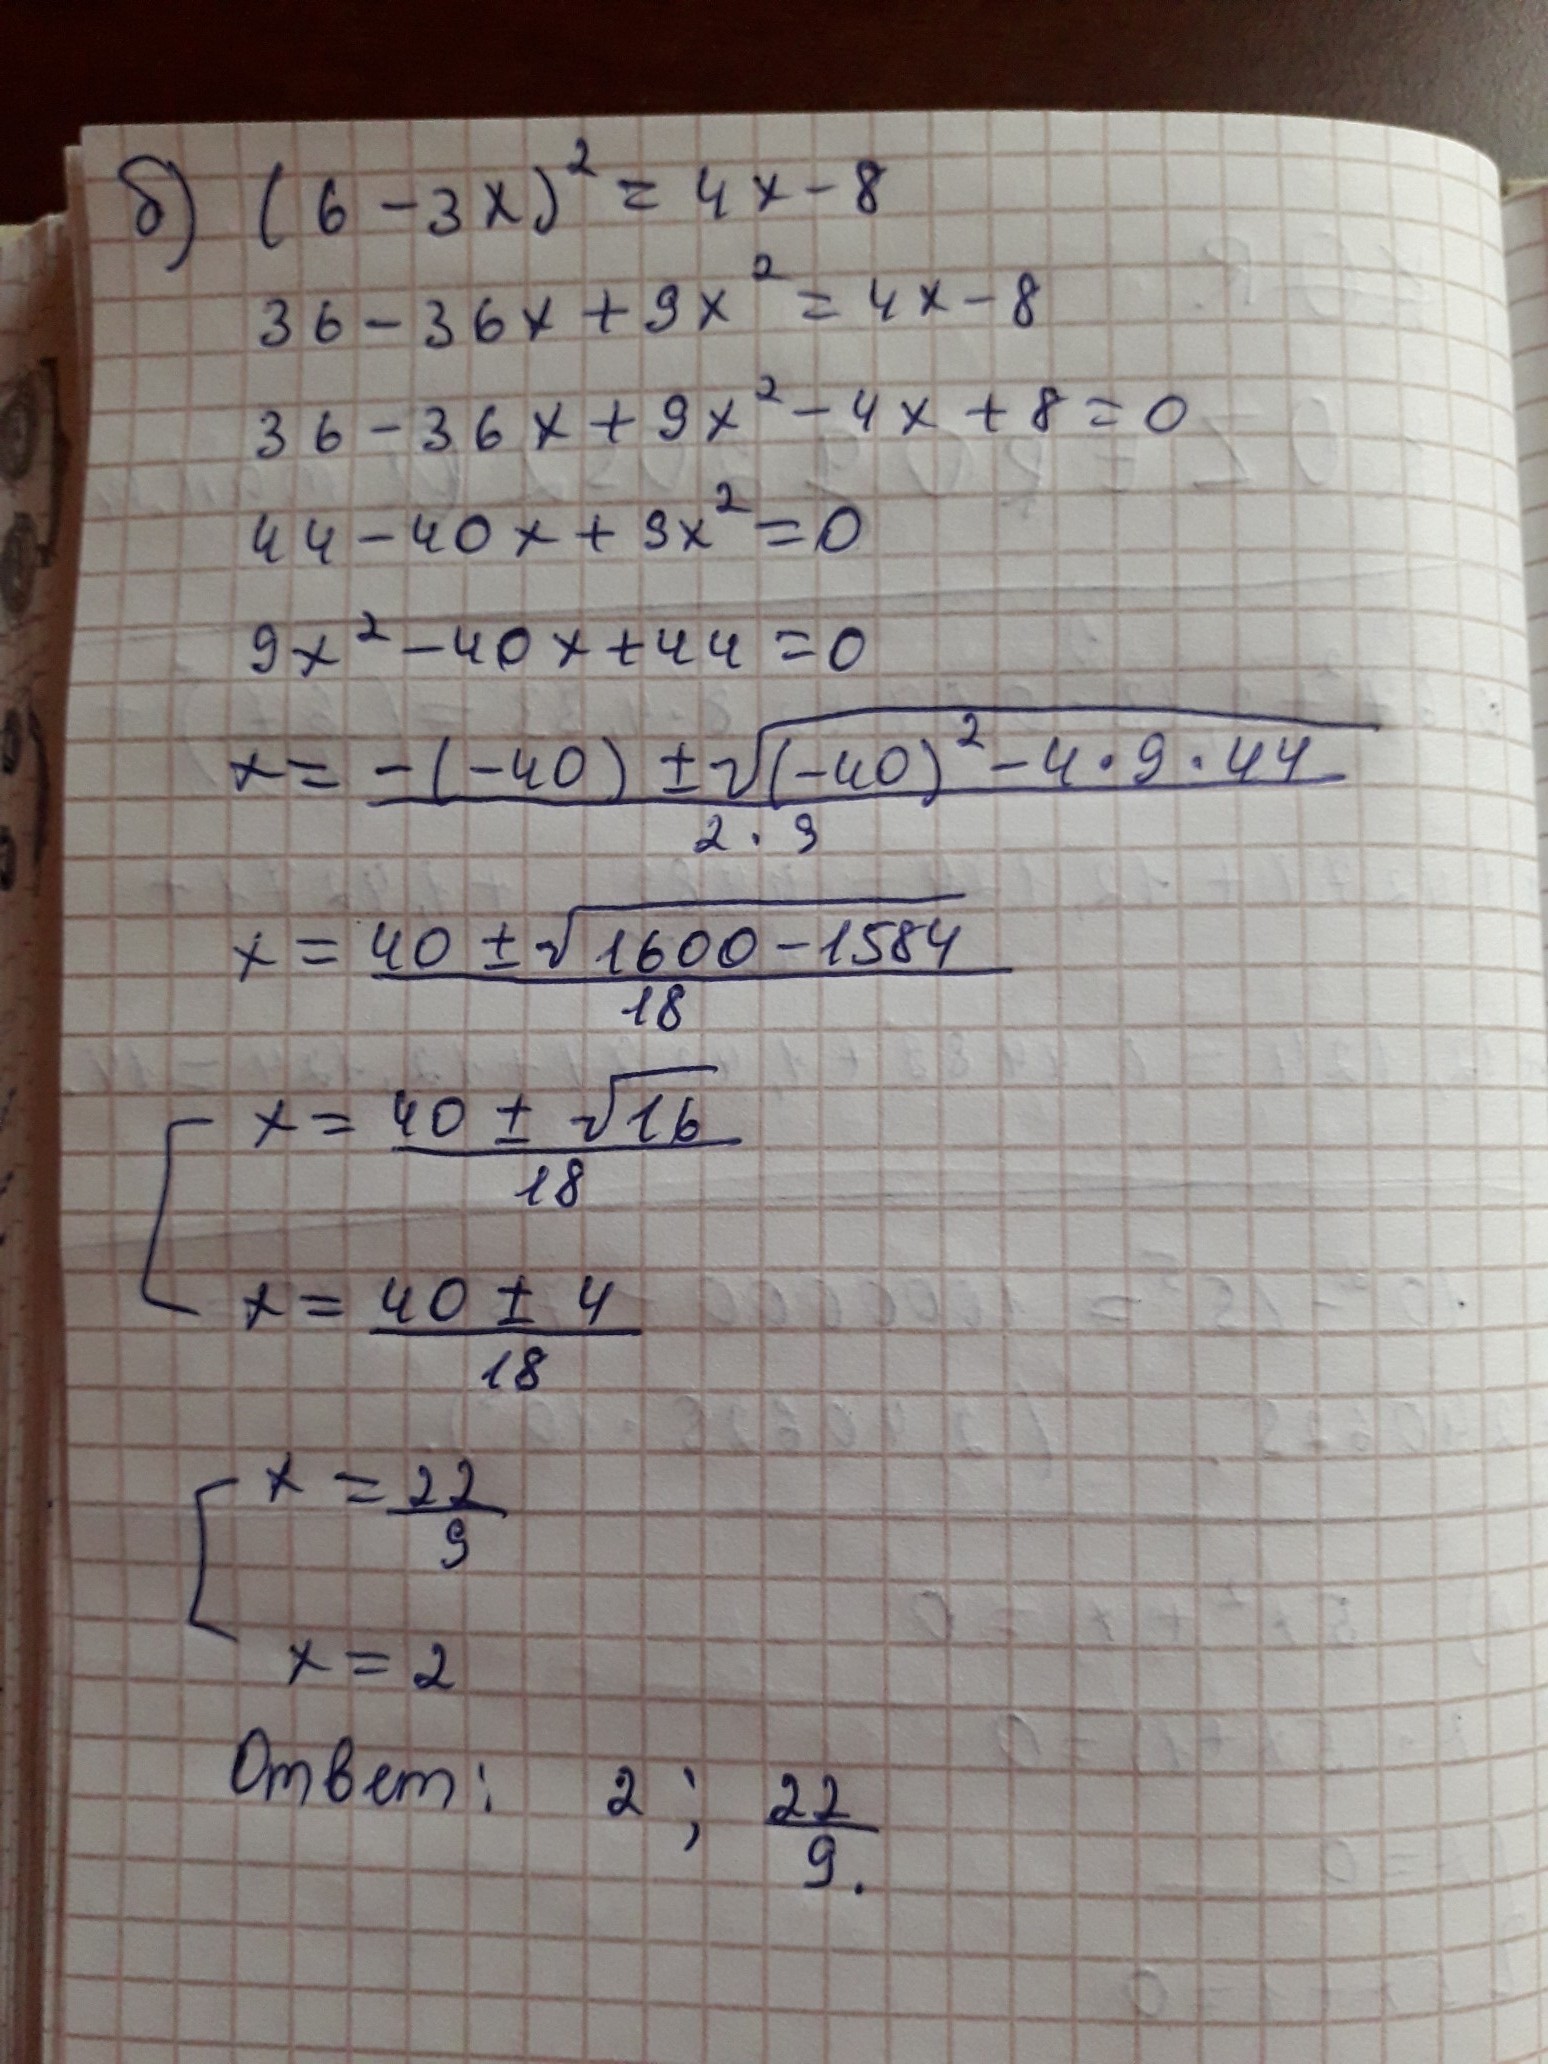 б) (6 - 3x)² = 4x - 8
36 - 36x + 9x² = 4x - 8
36 - 36x + 9x² - 4x + 8 = 0
44 - 40x + 9x² = 0
9x² - 40x + 44 = 0
x = -(-40) ± √(-40)² - 4 · 9 · 44
2 · 9
x = 40 ± √1600 - 1584
18
x = 40 ± √16
18
x = 40 ± 4
18
x = 22
9
x = 2
Ответ: 2 ; 22
9.